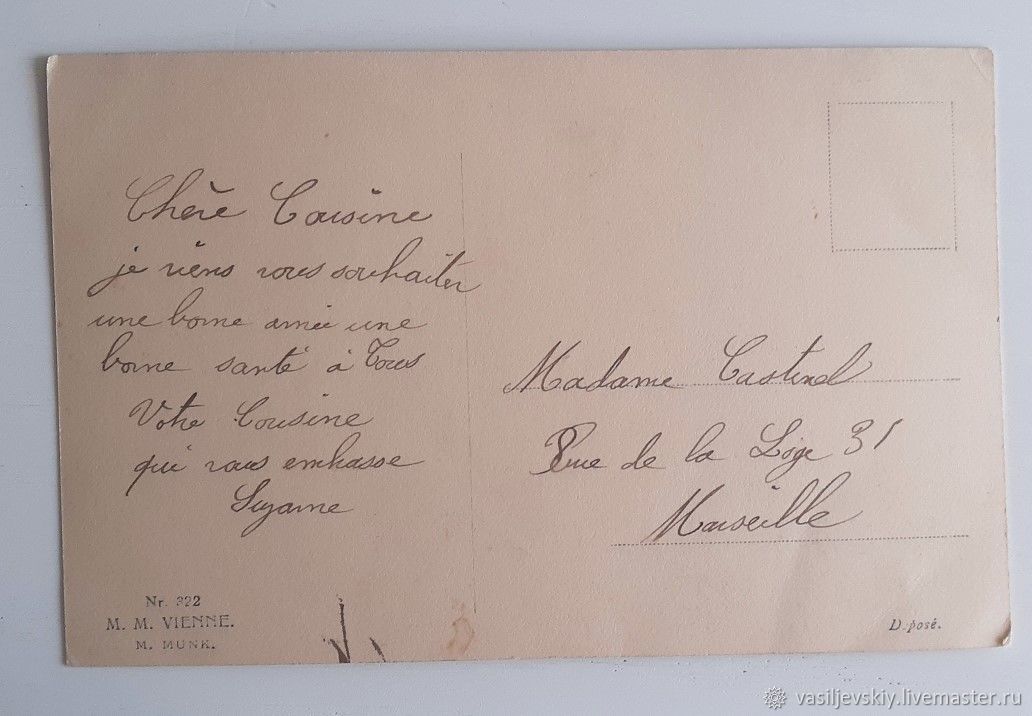 Chère Cousine
je viens vous souhaiter
une bonne année une
bonne santé à Tous
Votre Cousine
qui vous embrasse
Suzanne
Madame Castinel
Rue de la Loge 31
Marseille
Nr. 322
M. M. VIENNE.
M. MUNK.
Déposé.
vasiljevskiy.livemaster.ru